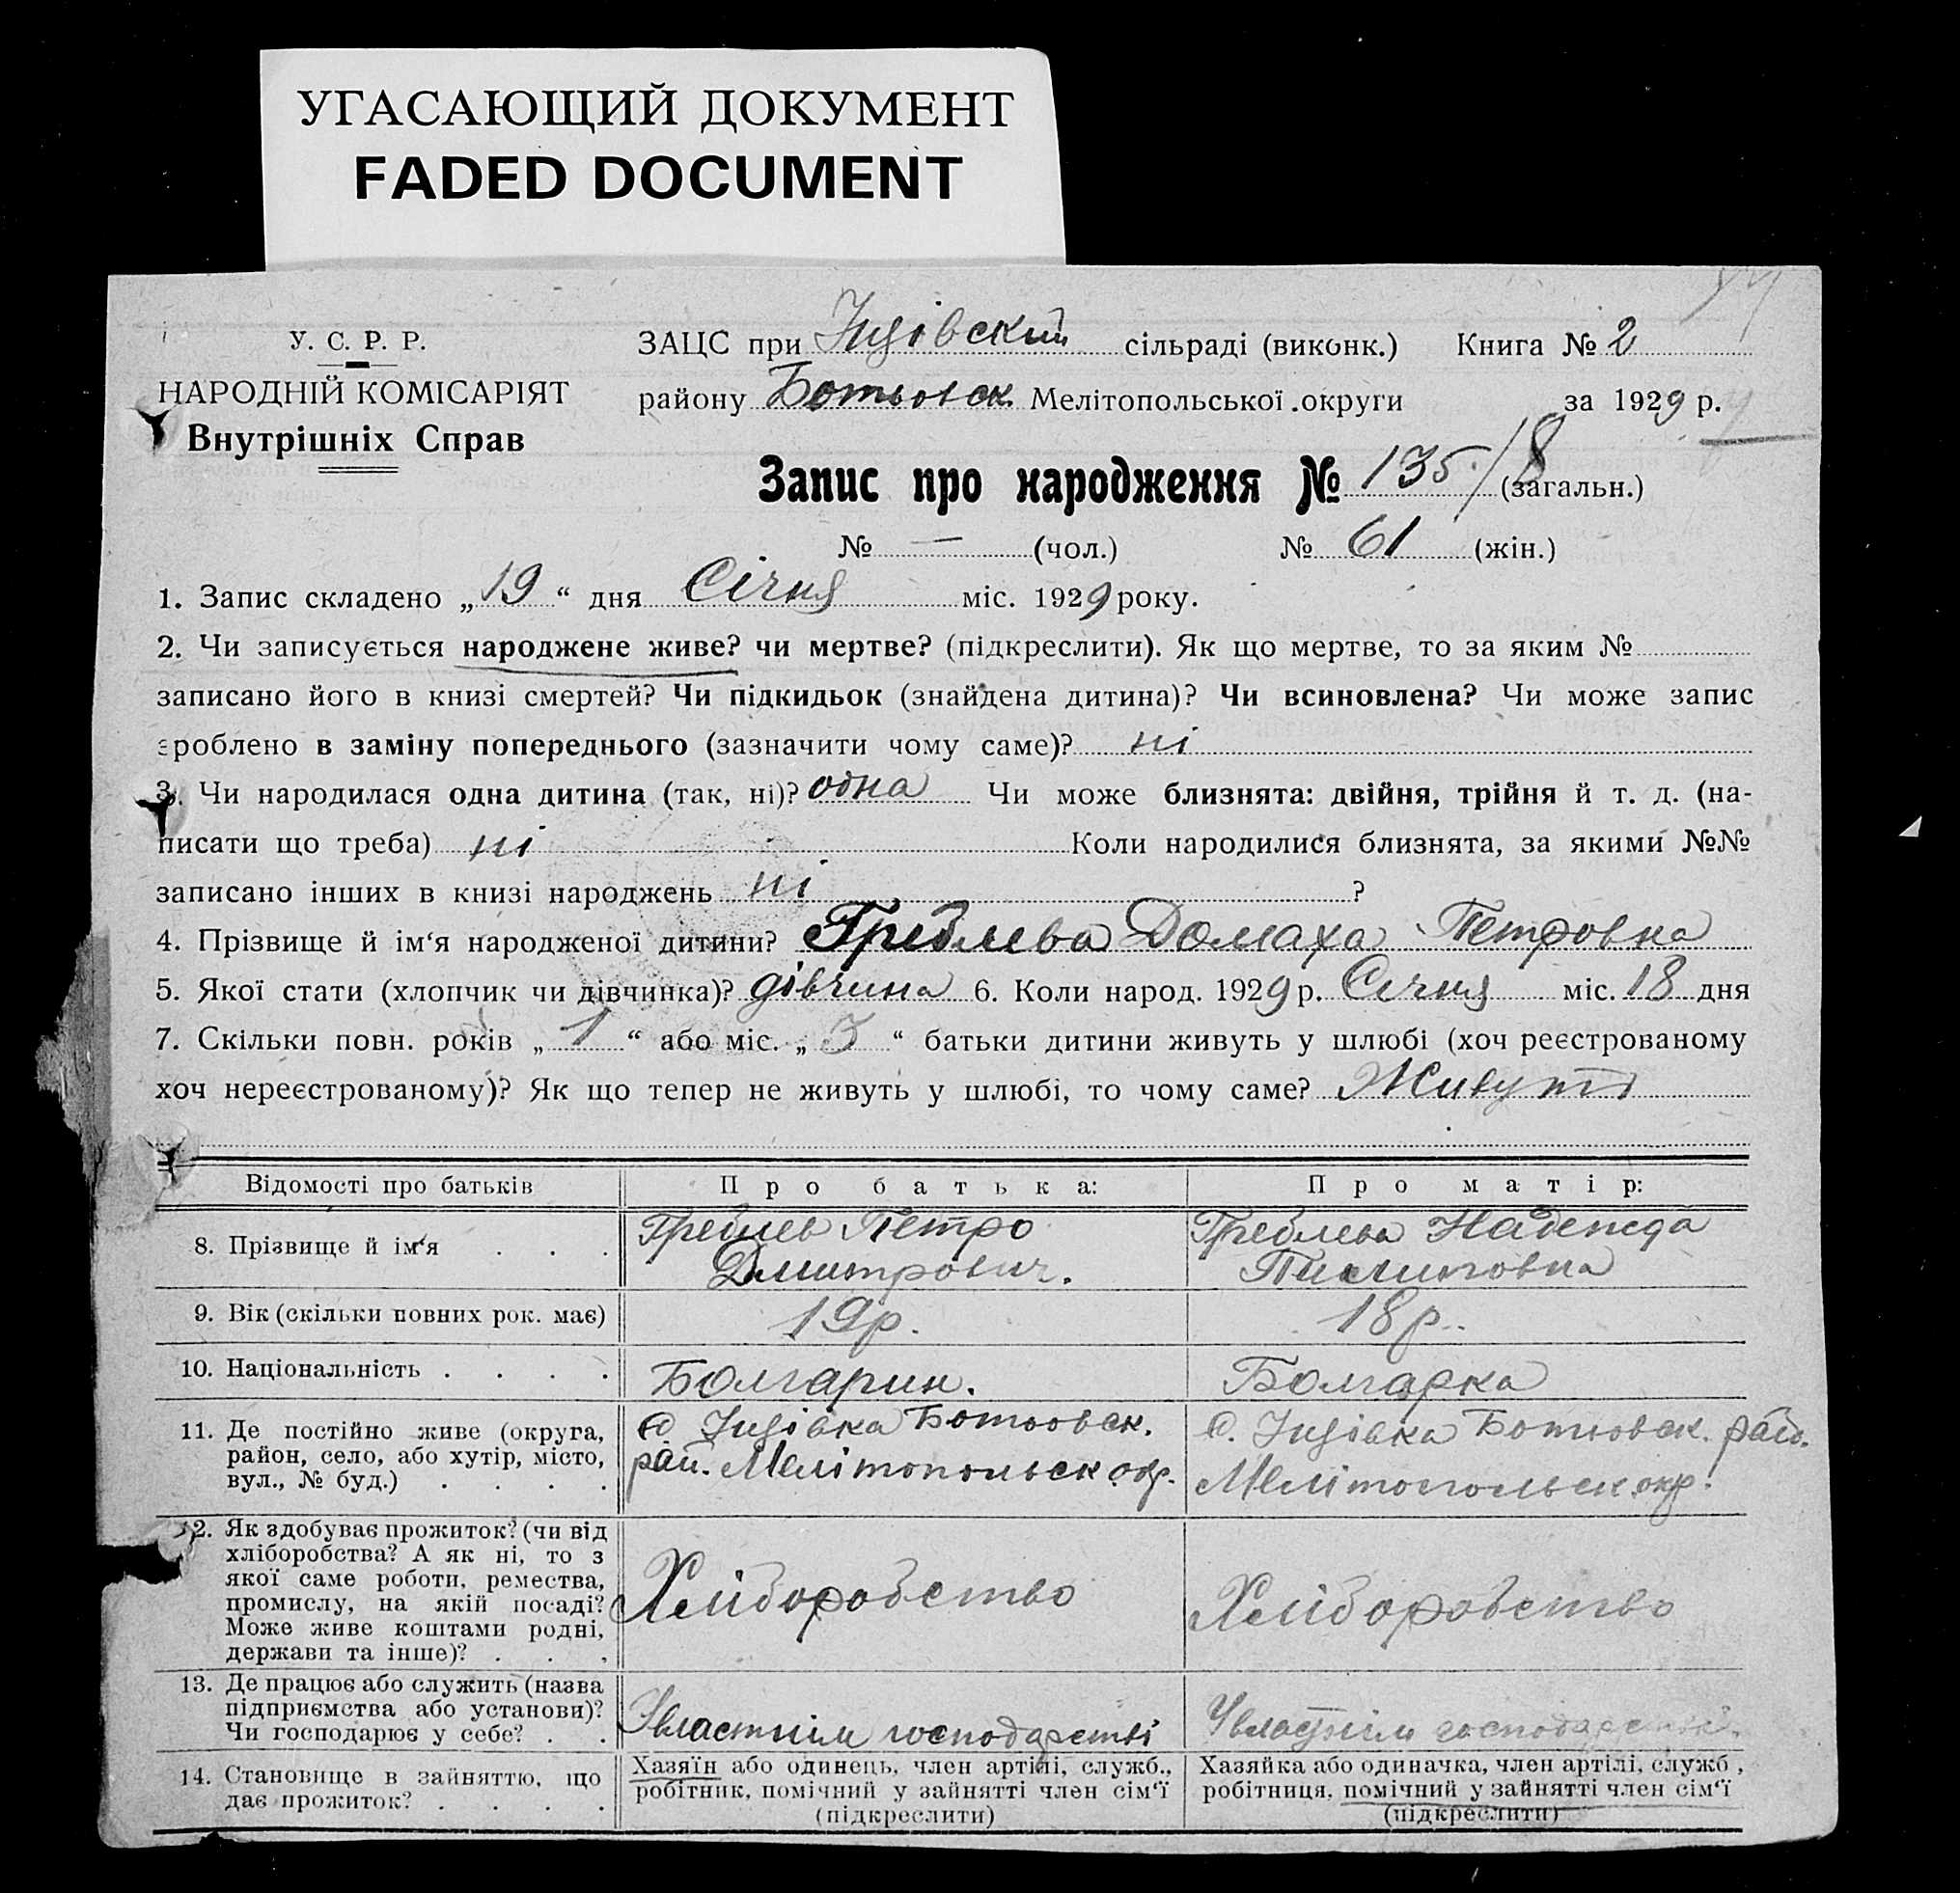 УГАСАЮЩИЙ ДОКУМЕНТ
FADED DOCUMENT
У. С. Р. Р.
НАРОДНІЙ КОМІСАРІЯТ
Внутрішніх Справ
ЗАЦС при сільраді (виконк.) Книга № 2
району Ботьовск Мелітопольської округи за 1929 р.
Запис про народження № 135/8 (загальн.)
№ — (чол.) № 61 (жін.)
1. Запис складено „19“ дня Січня міс. 1929 року.
2. Чи записується народжене живе? чи мертве? (підкреслити). Як що мертве, то за яким №
записано його в книзі смертей? Чи підкидьок (знайдена дитина)? Чи всиновлена? Чи може запис
зроблено в заміну попереднього (зазначити чому саме)? ні
3. Чи народилася одна дитина (так, ні)? одна Чи може близнята: двійня, трійня й т. д. (на-
писати що треба) ні Коли народилися близнята, за якими №№
записано інших в книзі народжень ні ?
4. Прізвище й ім‘я народженої дитини? Греблева Домаха Петровна
5. Якої стати (хлопчик чи дівчинка)? дівчина 6. Коли народ. 1929 р. Січня міс. 18 дня
7. Скільки повн. років „1“ або міс. „3“ батьки дитини живуть у шлюбі (хоч реєстрованому
хоч нереєстрованому)? Як що тепер не живуть у шлюбі, то чому саме? Живуть
Відомості про батьків
Про батька:
Про матір:
8. Прізвище й ім‘я . . .
Греблев Петро
Дмитрович.
Греблева Надежда
9. Вік (скільки повних рок. має)
19 р.
18 р.
10. Національність . . . .
Болгарин.
Болгарка
11. Де постійно живе (округа,
район, село, або хутір, місто,
вул., № буд.) . . . .
с. Ботьовск.
рай. Мелітопольск окр.
с. Ботьовск. рай.
Мелітопольск окр.
12. Як здобуває прожиток? (чи від
хліборобства? А як ні, то з
якої саме роботи, ремества,
промислу, на якій посаді?
Може живе коштами родні,
держави та інше)? . . .
Хліборобство
Хліборобство
13. Де працює або служить (назва
підприємства або установи)?
Чи господарює у себе? . .
У властнім господарстві
У властнім господарстві
14. Становище в зайняттю, що
дає прожиток? . . . .
Хазяїн або одинець, член артілі, служб.,
робітник, помічний у зайнятті член сім‘ї
(підкреслити)
Хазяйка або одиначка, член артілі, служб.,
робітниця, помічний у зайнятті член сім‘ї
(підкреслити)